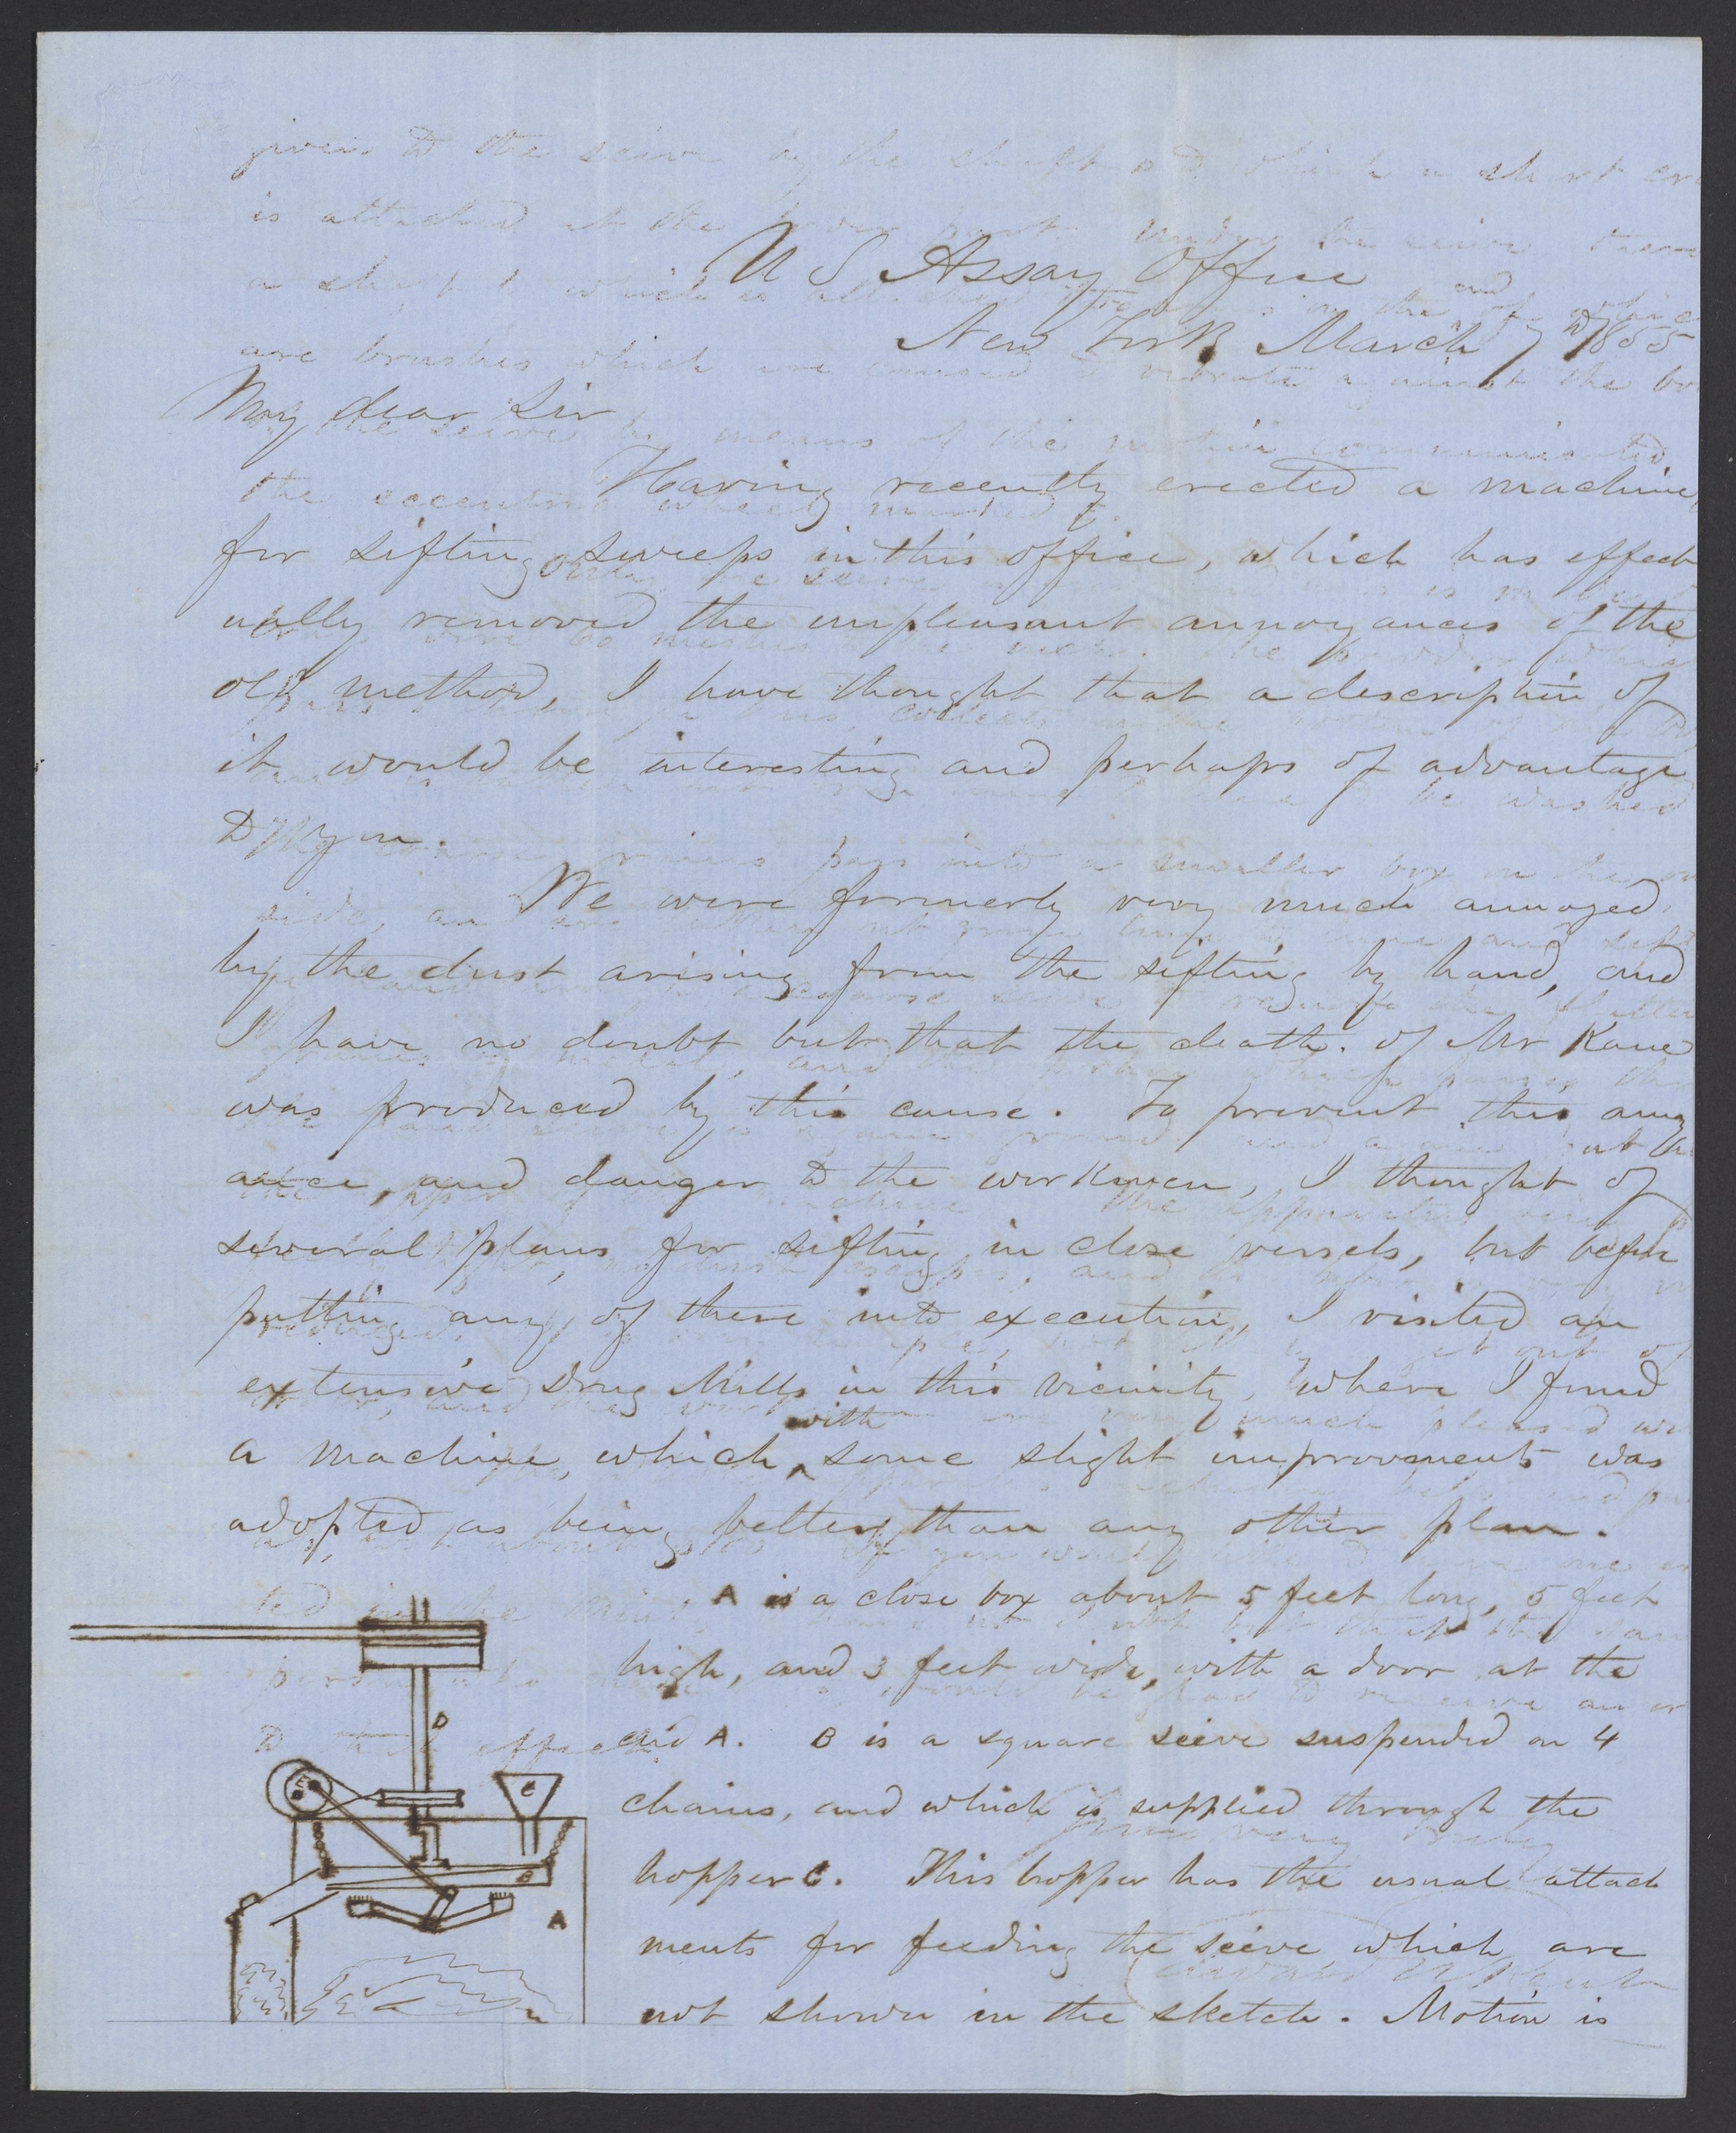 U S Assay Office
New York March 7th 1855
My dear Sir
Having recently erected a machine,
for sifting sweeps in this office, which has effect
ually removed the unpleasant annoyances of the
old method, I have thought that a description of
it would be interesting and perhaps of advantage
to you.
We were formerly very much annoyed
by the dust arising from the sifting by hand, and
I have no doubt but that the death of Mr Kane
was produced by this cause. To prevent this annoy
ance, and danger to the workmen, I thought of
several plans for sifting in close vessels, but before
putting any of these into execution, I visited an
extensive Drug Mills in this vicinity, where I found
a machine, which with some slight improvements was
adopted as being better than any other plan.
A is a close box about 5 feet long, 5 feet
high, and 3 feet wide, with a door at the
end A. B is a square seive suspended on 4
chains, and which is supplied through the
hopper C. This hopper has the usual attach
ments for feeding the seive which are
not shown in the sketch. Motion is
D
E
C
B
A